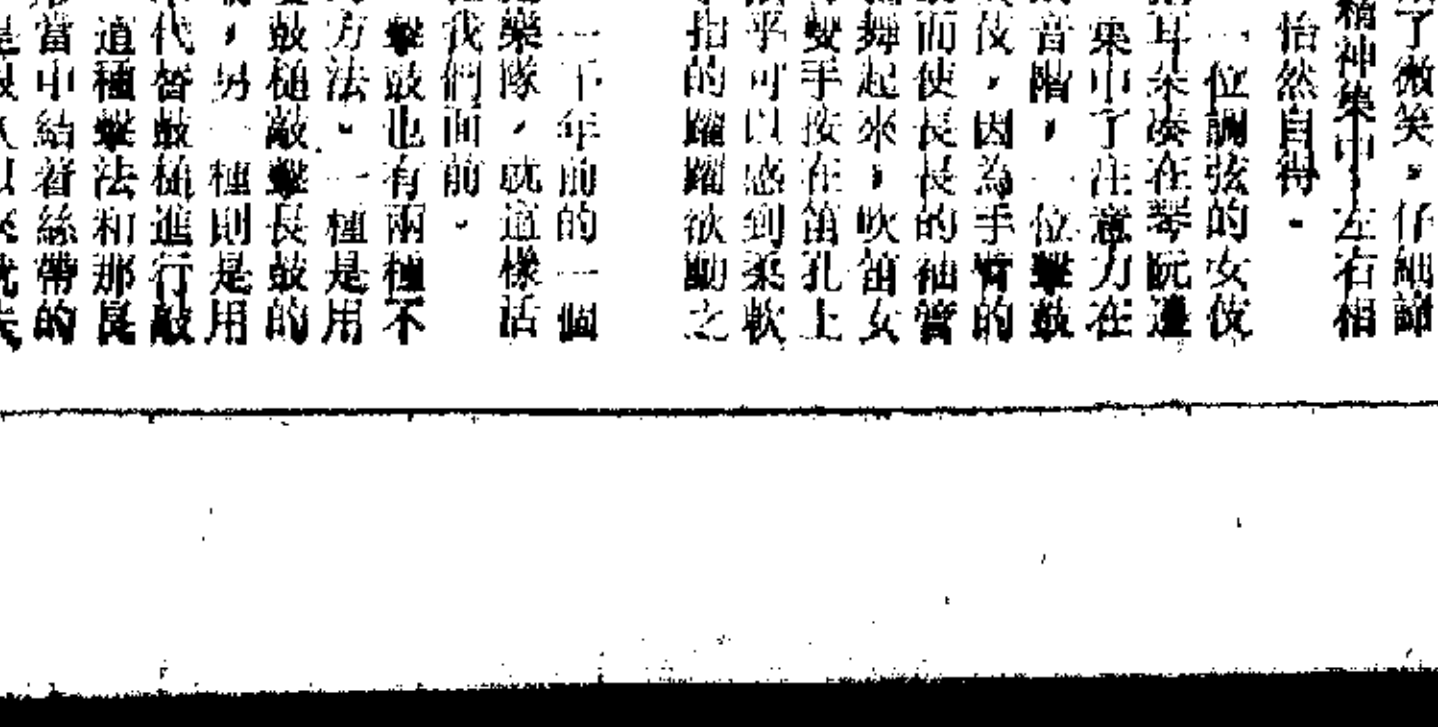 了微笑，仔細諦
精神集中，左右相
怡然自得。
一位調弦的女伎
耳朵湊在琴阮邊
集中了注意力在
音階，一位擊鼓
伎，因為手臂的
而使長長的袖管
舞起來，吹笛女
雙手按在笛孔上
乎可以感到柔軟
指的躍躍欲動之
一千年前的一個
樂隊，就這樣活
我們面前。
擊鼓也有兩種不
方法。一種是用
鼓槌敲擊長鼓的
，另一種則是用
代替鼓槌進行敲
這種擊法和那長
當中結着絲帶的